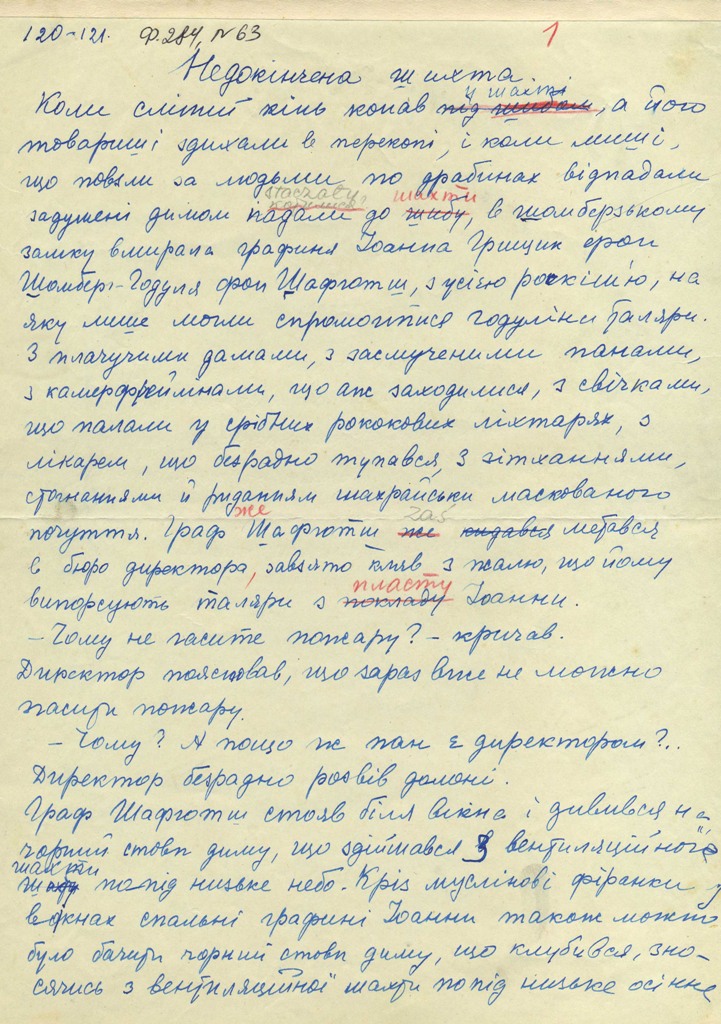 120-121. Ф. 284, N 63
1
Недокінчена шихта.
у шахті
Коли сліпий кінь конав під шибом, а його
товариші здихали в перекопі, і коли миші,
що повзли за людьми по драбинах відпадали
шахти
задушені димом падали до шибу, в шомберзькому
замку вмирала графиня Іоанна Грищик фон
Шомберг-Годуля фон Шафготш, з усією розкішшю, на
яку лише могли спромогтися годулині таляри.
З плачучими дамами, з засмученими панами,
з камерфреймнами, що аж заходилися, з свічками,
що палали у срібних рококових ліхтарях, з
лікарем, що безрадно тупався, з зітханнями,
стогнаннями й риданням шахрайськи маскованого
же заś
почуття. Граф Шафготш же кидався метався
в бюро директора, завзято кляв з жалю, що йому
пласту
випорсують таляри з покладу Іоанни.
- Чому не гасите пожару? - кричав.
Директор пояснював, що зараз вже не можно
гасити пожару.
- Чому? А пощо ж пан є директором?..
Директор безрадно розвів долоні.
Граф Шафготш стояв біля вікна і дивився на
чорний стовп диму, що здіймався з вентиляційного
шахти
шибу попід низьке небо. Кріз муслінові фіранки у
вікнах спальні графині Іоанни також можно
було бачити чорний стовп диму, що клубився, зно-
сячись з вентиляційної шахти попід низьке осіннє